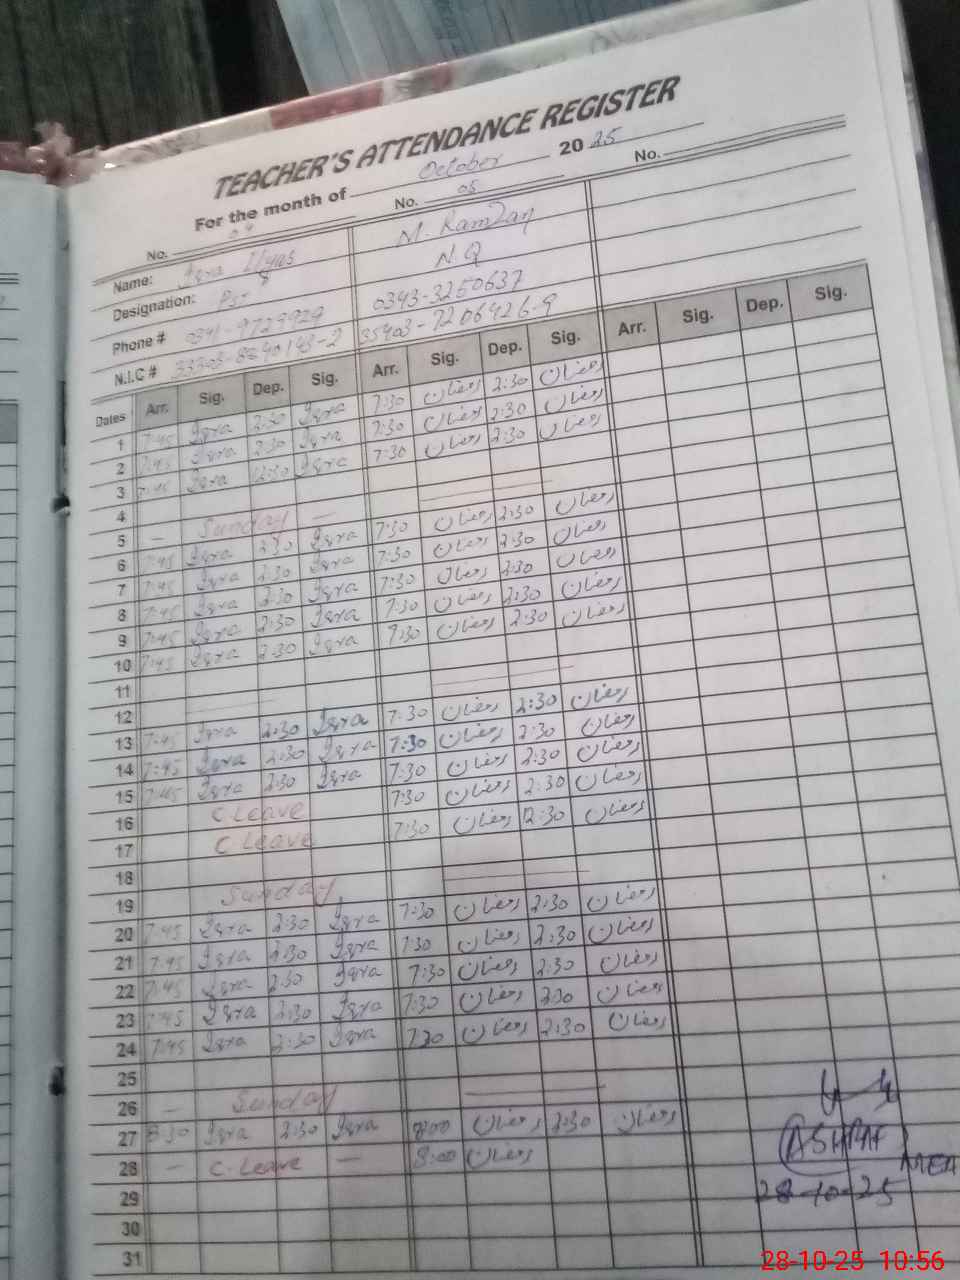 TEACHER'S ATTENDANCE REGISTER
For the month of October 2025
No. 04 No. 05 No.
Name: Iqra Ilyas M. Ramzan
Designation: PST N.Q
Phone # 0343-3250637
N.I.C # 35403-7206426-9
Dates Arr. Sig. Dep. Sig. Arr. Sig. Dep. Sig. Arr. Sig. Dep. Sig.
1 7:45 Iqra 2:30 Iqra 7:30 رمضان 2:30 رمضان
2 7:45 Iqra 2:30 Iqra 7:30 رمضان 2:30 رمضان
3 7:45 Iqra 12:30 Iqra 7:30 رمضان 2:30 رمضان
4
5 — Sunday —
6 7:45 Iqra 2:30 Iqra 7:30 رمضان 2:30 رمضان
7 7:45 Iqra 2:30 Iqra 7:30 رمضان 2:30 رمضان
8 7:45 Iqra 2:30 Iqra 7:30 رمضان 2:30 رمضان
9 7:45 Iqra 2:30 Iqra 7:30 رمضان 2:30 رمضان
10 7:45 Iqra 2:30 Iqra 7:30 رمضان 2:30 رمضان
11
12
13 7:45 Iqra 2:30 Iqra 7:30 رمضان 2:30 رمضان
14 7:45 Iqra 2:30 Iqra 7:30 رمضان 2:30 رمضان
15 7:45 Iqra 2:30 Iqra 7:30 رمضان 2:30 رمضان
16 C.Leave 7:30 رمضان 2:30 رمضان
17 C.Leave 7:30 رمضان 2:30 رمضان
18
19 Sunday
20 7:45 Iqra 2:30 Iqra 7:30 رمضان 2:30 رمضان
21 7:45 Iqra 2:30 Iqra 7:30 رمضان 2:30 رمضان
22 7:45 Iqra 2:30 Iqra 7:30 رمضان 2:30 رمضان
23 7:45 Iqra 2:30 Iqra 7:30 رمضان 2:30 رمضان
24 7:45 Iqra 2:30 Iqra 7:30 رمضان 2:30 رمضان
25
26 — Sunday
27 8:30 Iqra 2:30 Iqra 8:00 رمضان 2:30 رمضان
28 — C.Leave — 8:00 رمضان
ASHRAF MEA
29 28-10-25
30
31
28-10-25 10:56